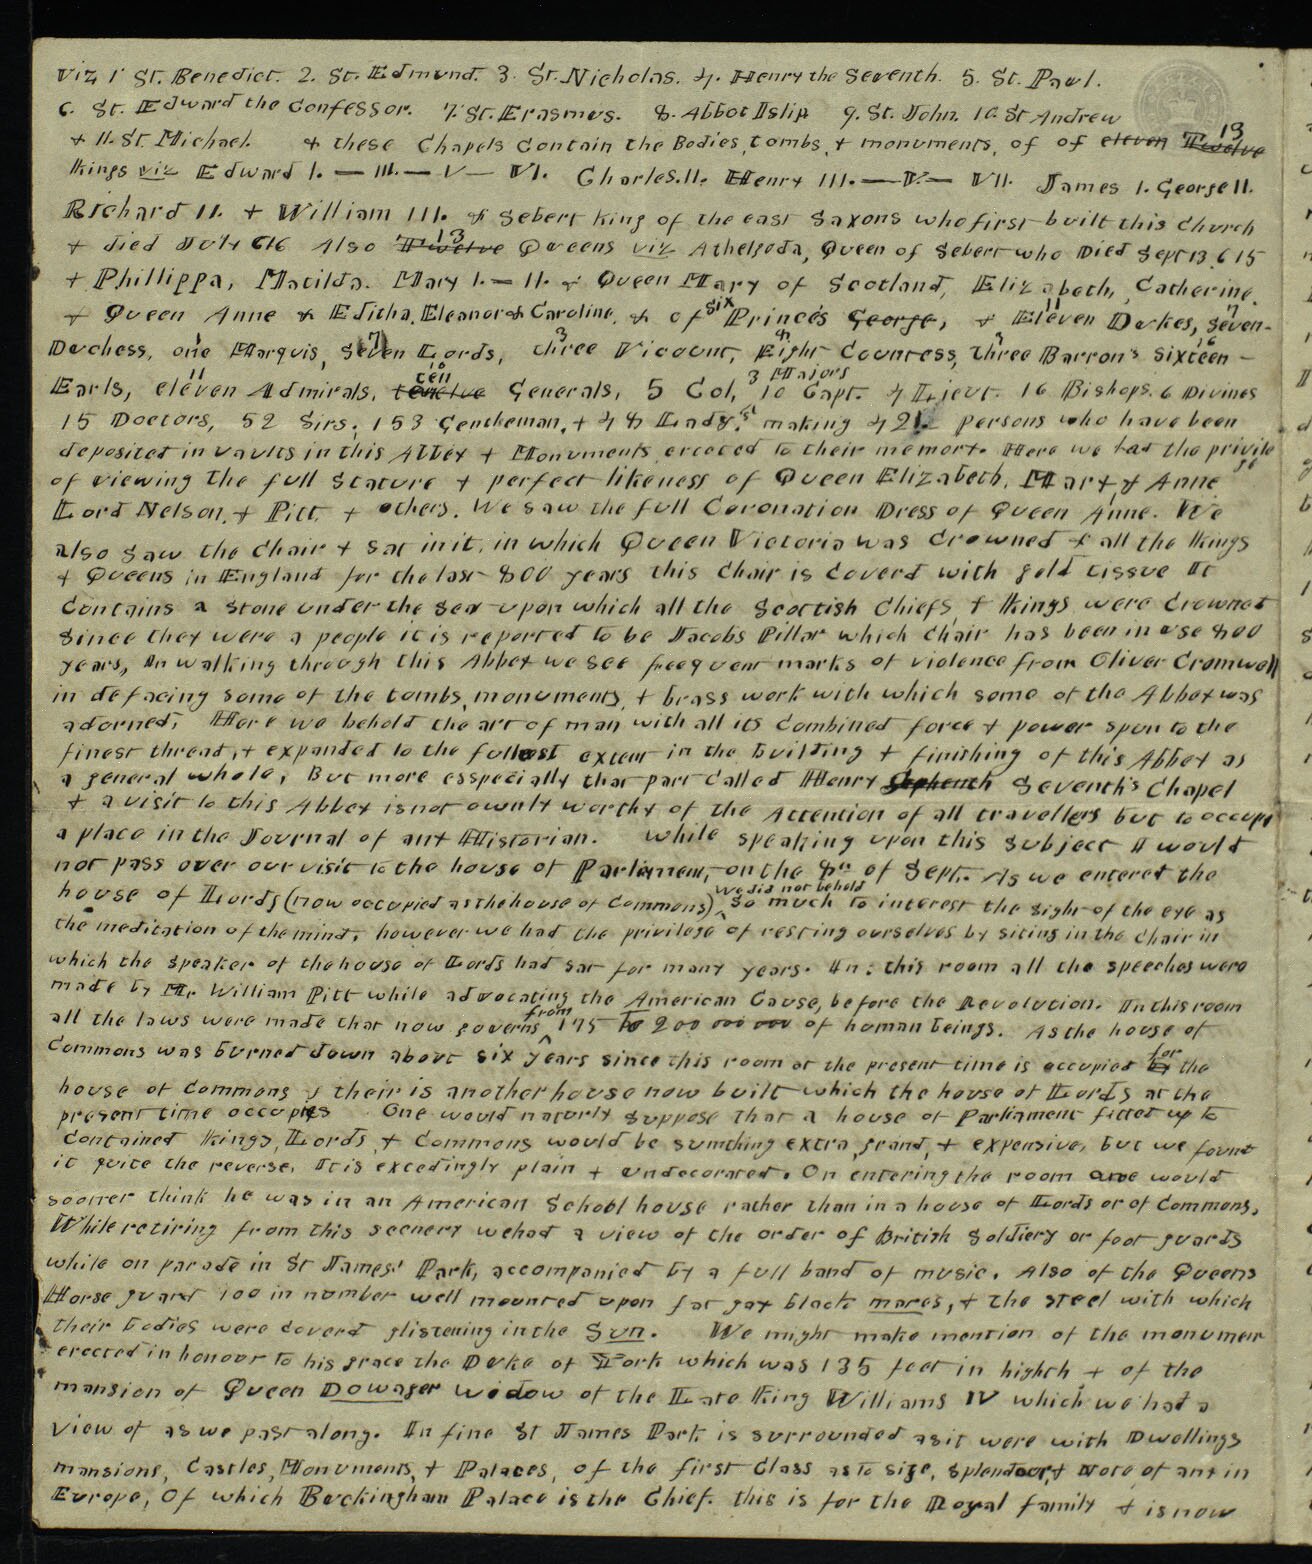 viz 1 St. Benedict. 2. St. Edmund. 3. St. Nicholas. 4. Henry the Seventh. 5. St. Paul.
6. St. Edward the Confessor. 7. St. Erasmus. 8. Abbot Islip 9. St. John. 10. St Andrew
+ 11. St. Michael. + these Chapels contain the Bodies, tombs, + monuments, of of eleven Twelve 13
Kings viz Edward I. — III. — V — VI. Charles. II. Henry III. — V. — VII. James I. George II.
Richard II. + William III. & Sebert King of the east Saxons who first built this Church
+ died July 616 Also Twelve 13 Queens viz Athelgoda, Queen of Sebert who Died Sept 13. 615
+ Phillippa, Matilda. Mary I. — II. & Queen Mary of Scotland, Elizabeth, Catherine.
+ Queen Anne & Editha, Eleanor & Caroline, & of six Princes George, + Eleven 11 Dukes, seven 7 -
Duchess, one 1 Marquis, Seven 7 Lords, three 3 Vicount, Eight 8 Countess, three 3 Barron's sixteen 16 -
Earls, eleven 11 Admirals, twelve ten 10 Generals, 5 Col, 3 Majors 10 Capt. 4 Lieut. 16 Bishops. 6 Divines
15 Doctors, 52 Sirs, 153 Gentleman, + 48 Lady's, making 421 persons who have been
deposited in vaults in this Abbey + Monuments erected to their memory. Here we had the privilege
of viewing the full Stature + perfect likeness of Queen Elizabeth, Mary, & Anne
Lord Nelson, + Pitt, + others. We saw the full Coronation Dress of Queen Anne. We
also saw the chair + sat in it, in which Queen Victoria was Crowned & all the Kings
+ Queens in England for the last 800 years this Chair is Coverd with gold tissue It
Contains a stone under the seat upon which all the Scottish Chiefs, + Kings were Crowned
Since they were a people it is reported to be Jacobs Pillar which chair has been in use 800
years, In walking through this Abbey we see freequent marks of violence from Oliver Cromwell
in defacing some of the tombs, monuments, + brass work with which some of the Abbey was
adorned, Here we behold the art of man with all its Combined force + power spun to the
finest thread, + expanded to the fullest extent in the building + finishing of this Abbey as
a general whole, But more esspecially that part called Henry Sephenth Seventh's Chapel
+ a visit to this Abbey is not ownly worthy of the Attention of all travellers but to occupy
a place in the Journal of any Historian. While speaking upon this subject I would
not pass over our visit to the house of Parliament, on the 8th of Sept. As we entered the
house of Lords (now occupied as the house of Commons) we did not behold so much to interest the sight of the eye as
the meditation of the mind, however we had the privilege of resting ourselves by siting in the Chair in
which the Speaker of the house of Lords had sat for many years. In this room all the speeches were
made by Mr. William Pitt while advocating the American Cause, before the Revolution. In this room
all the laws were made that now governs from 175 to 200 000 000 of human beings. As the house of
Commons was burned down about six years since this room at the present time is occupied by for the
house of Commons & their is another house now built which the house of Lords at the
present time occupies One would naturly suppose that a house of Parliament fitted up to
Contained Kings, Lords, + Commons would be sumthing extra, grand, + expensive, but we found
it quite the reverse, It is excedingly plain + undecorated. On entering the room one would
sooner think he was in an American School house rather than in a house of Lords or of Commons,
While retiring from this scenery we had a view of the order of British Soldiery or foot guards
while on parade in St James' Park, accompanied by a full band of music. Also of the Queens
Horse guard 100 in number well mounted upon fat gay black mares, + the steel with which
their bodies were coverd glistening in the Sun. We might make mention of the monument
erected in honour to his grace the Duke of York which was 135 feet in highth + of the
mansion of Queen Dowager widow of the Late King Williams IV which we had a
view of as we past along. In fine St James Park is surrounded as it were with Dwellings
mansions, Castles, Monuments, + Palaces, of the first Class as to size, splendour, + note of any in
Europe, Of which Buckingham Palace is the Chief. this is for the Royal family + is now